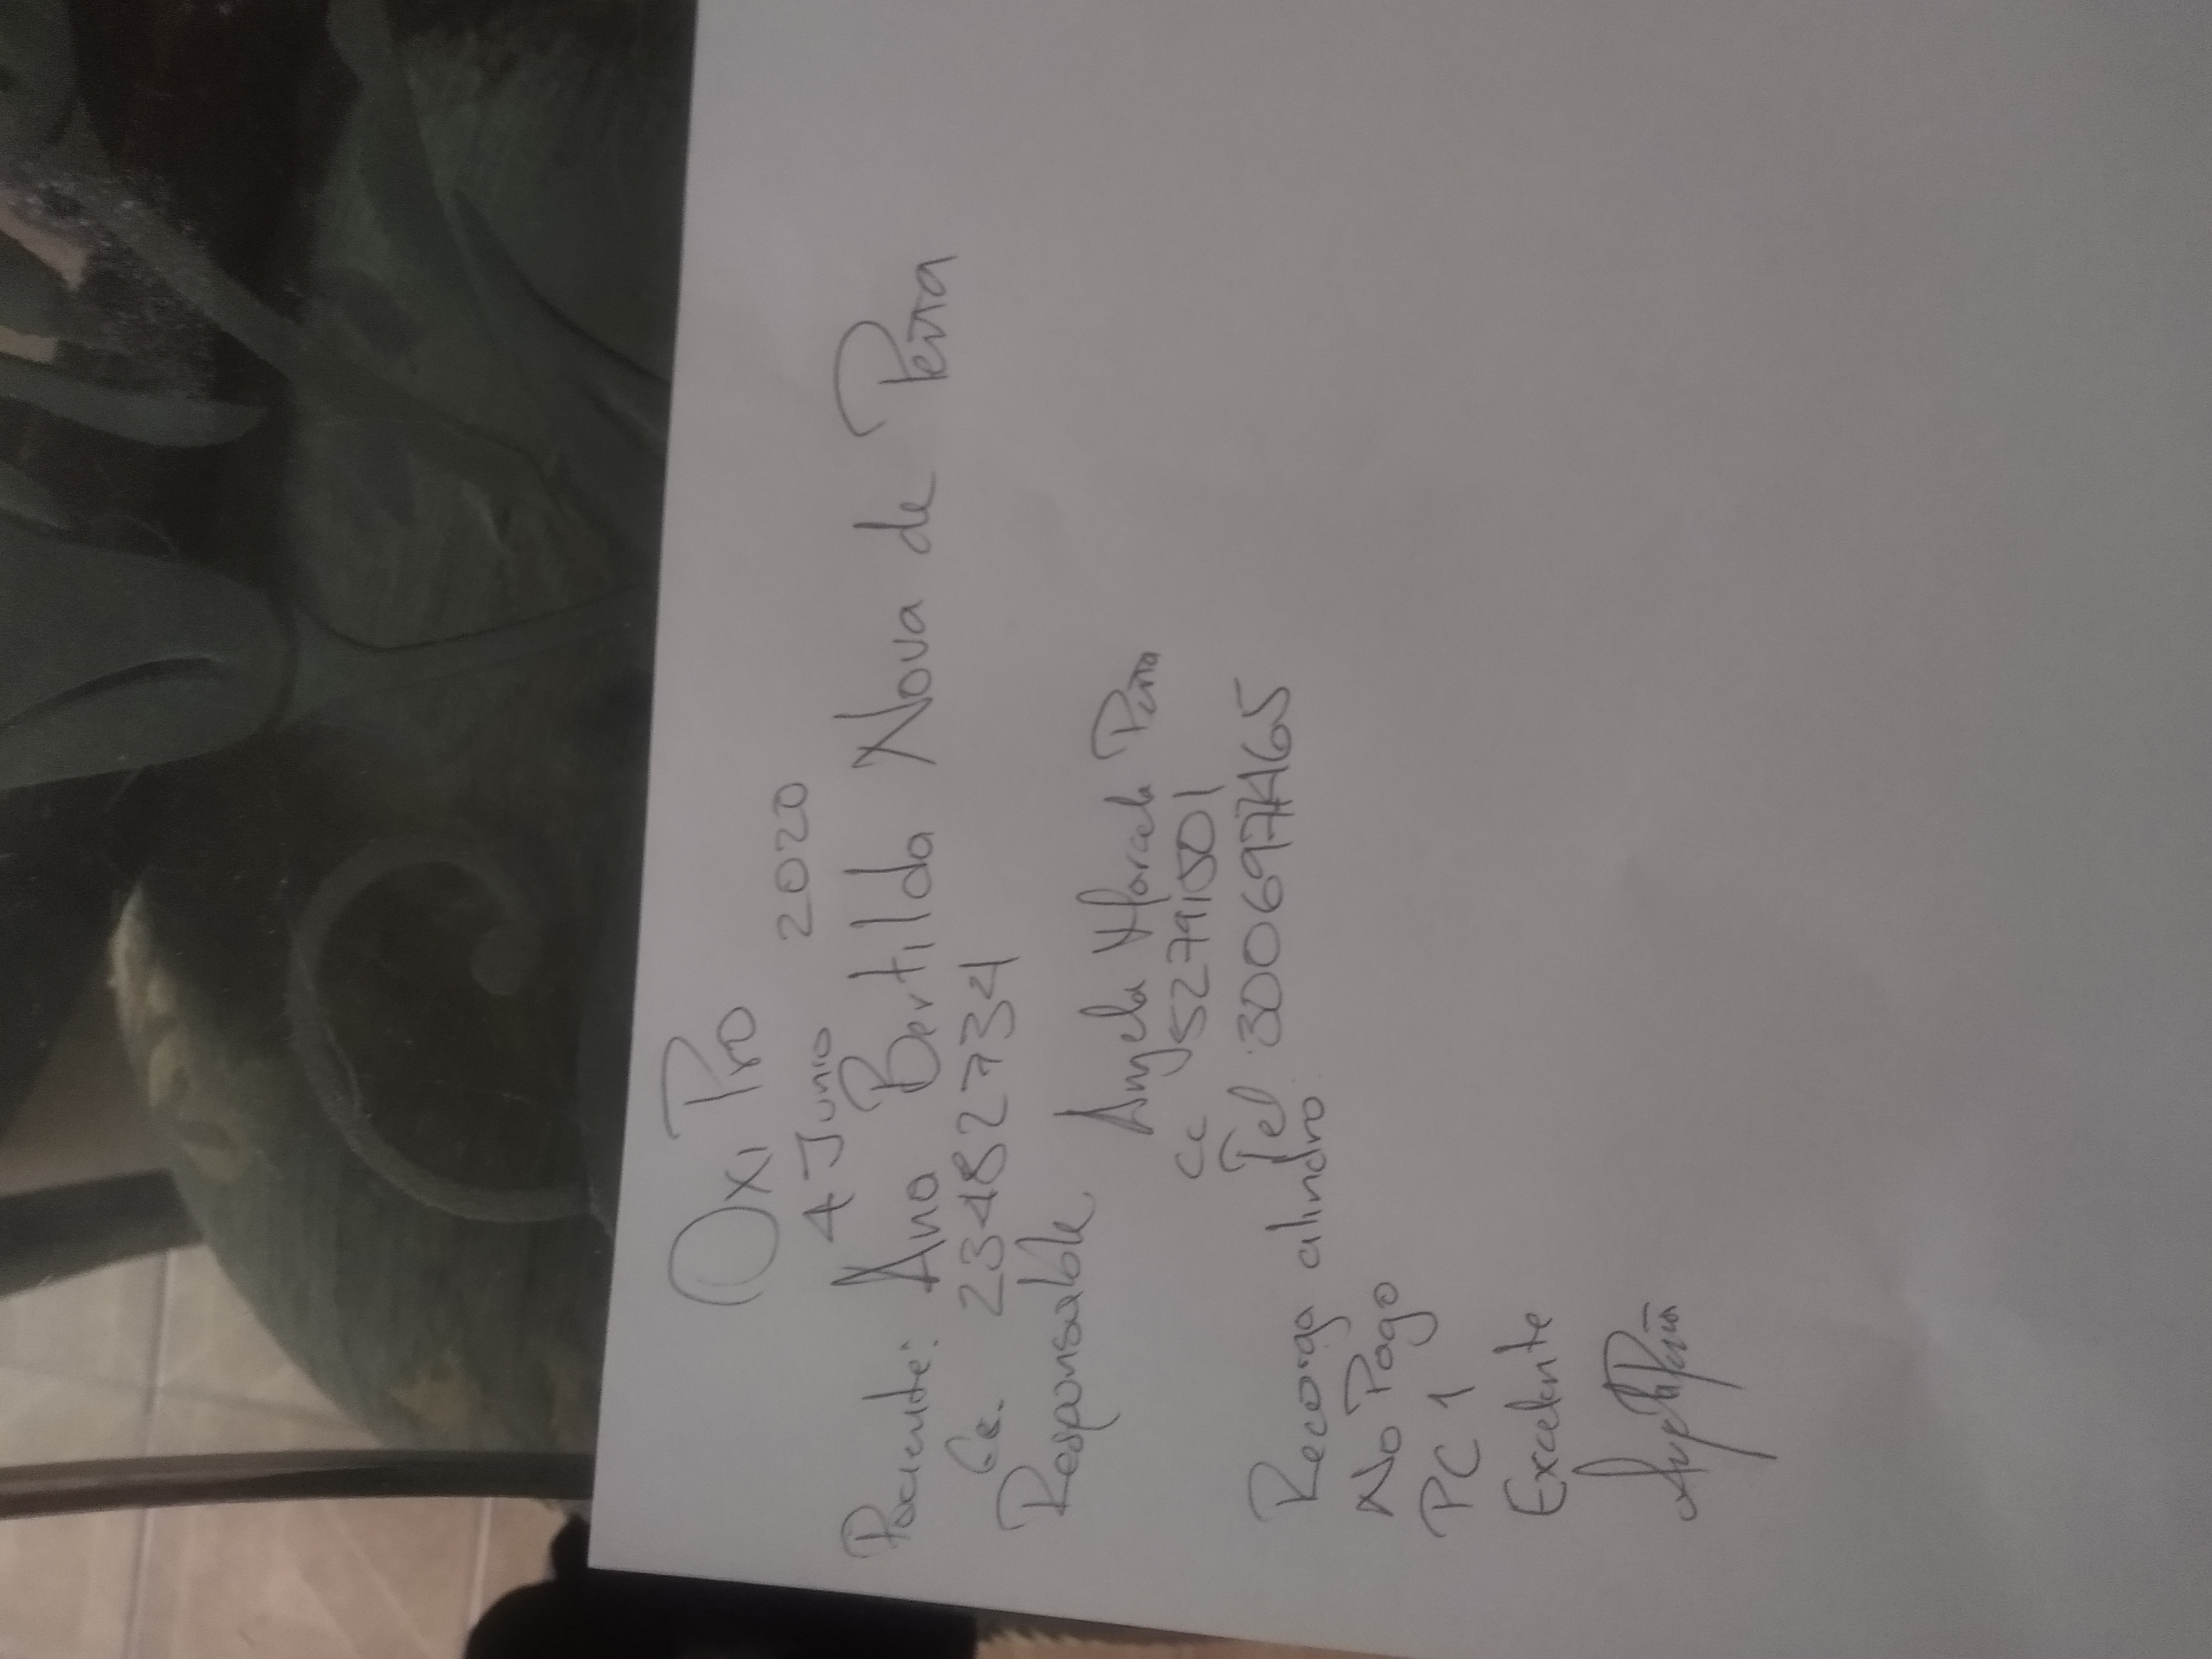 Oxi Pro
4 Junio 2020
Paciente: Ana Bertilda Nova de Peña
Cc. 23482734
Responsable Angela Marcela Peña
cc 52791501
Tel 3006977465
Recorga cilindro.
No Pago
PC 1
Excelente